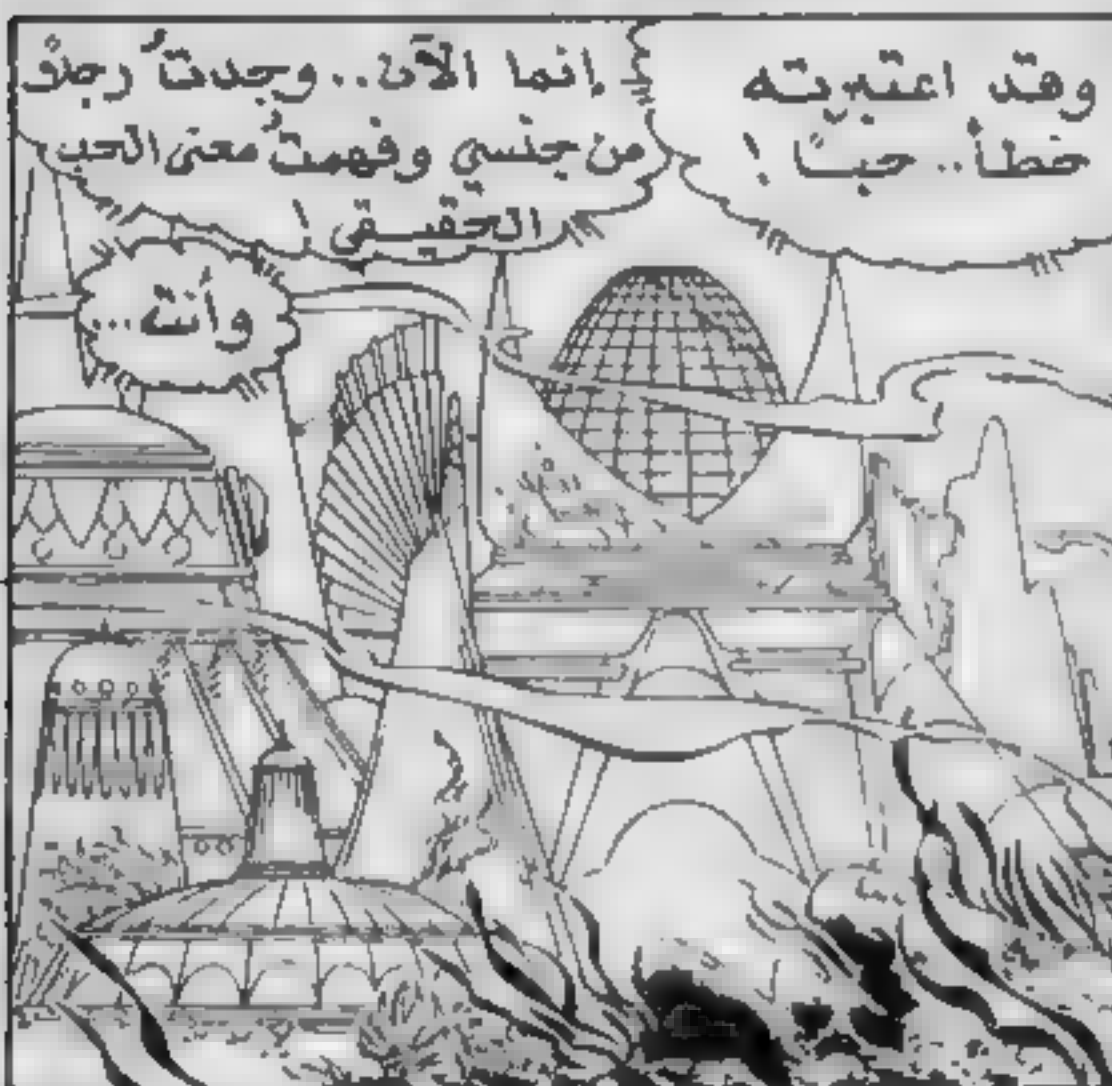 وقد اعتبرته
خطأ.. حباً !
إنما الآن.. وجدتُ رجلاً
من جنسي وفهمتُ معنى الحب
الحقيقي !
وأنتَ...